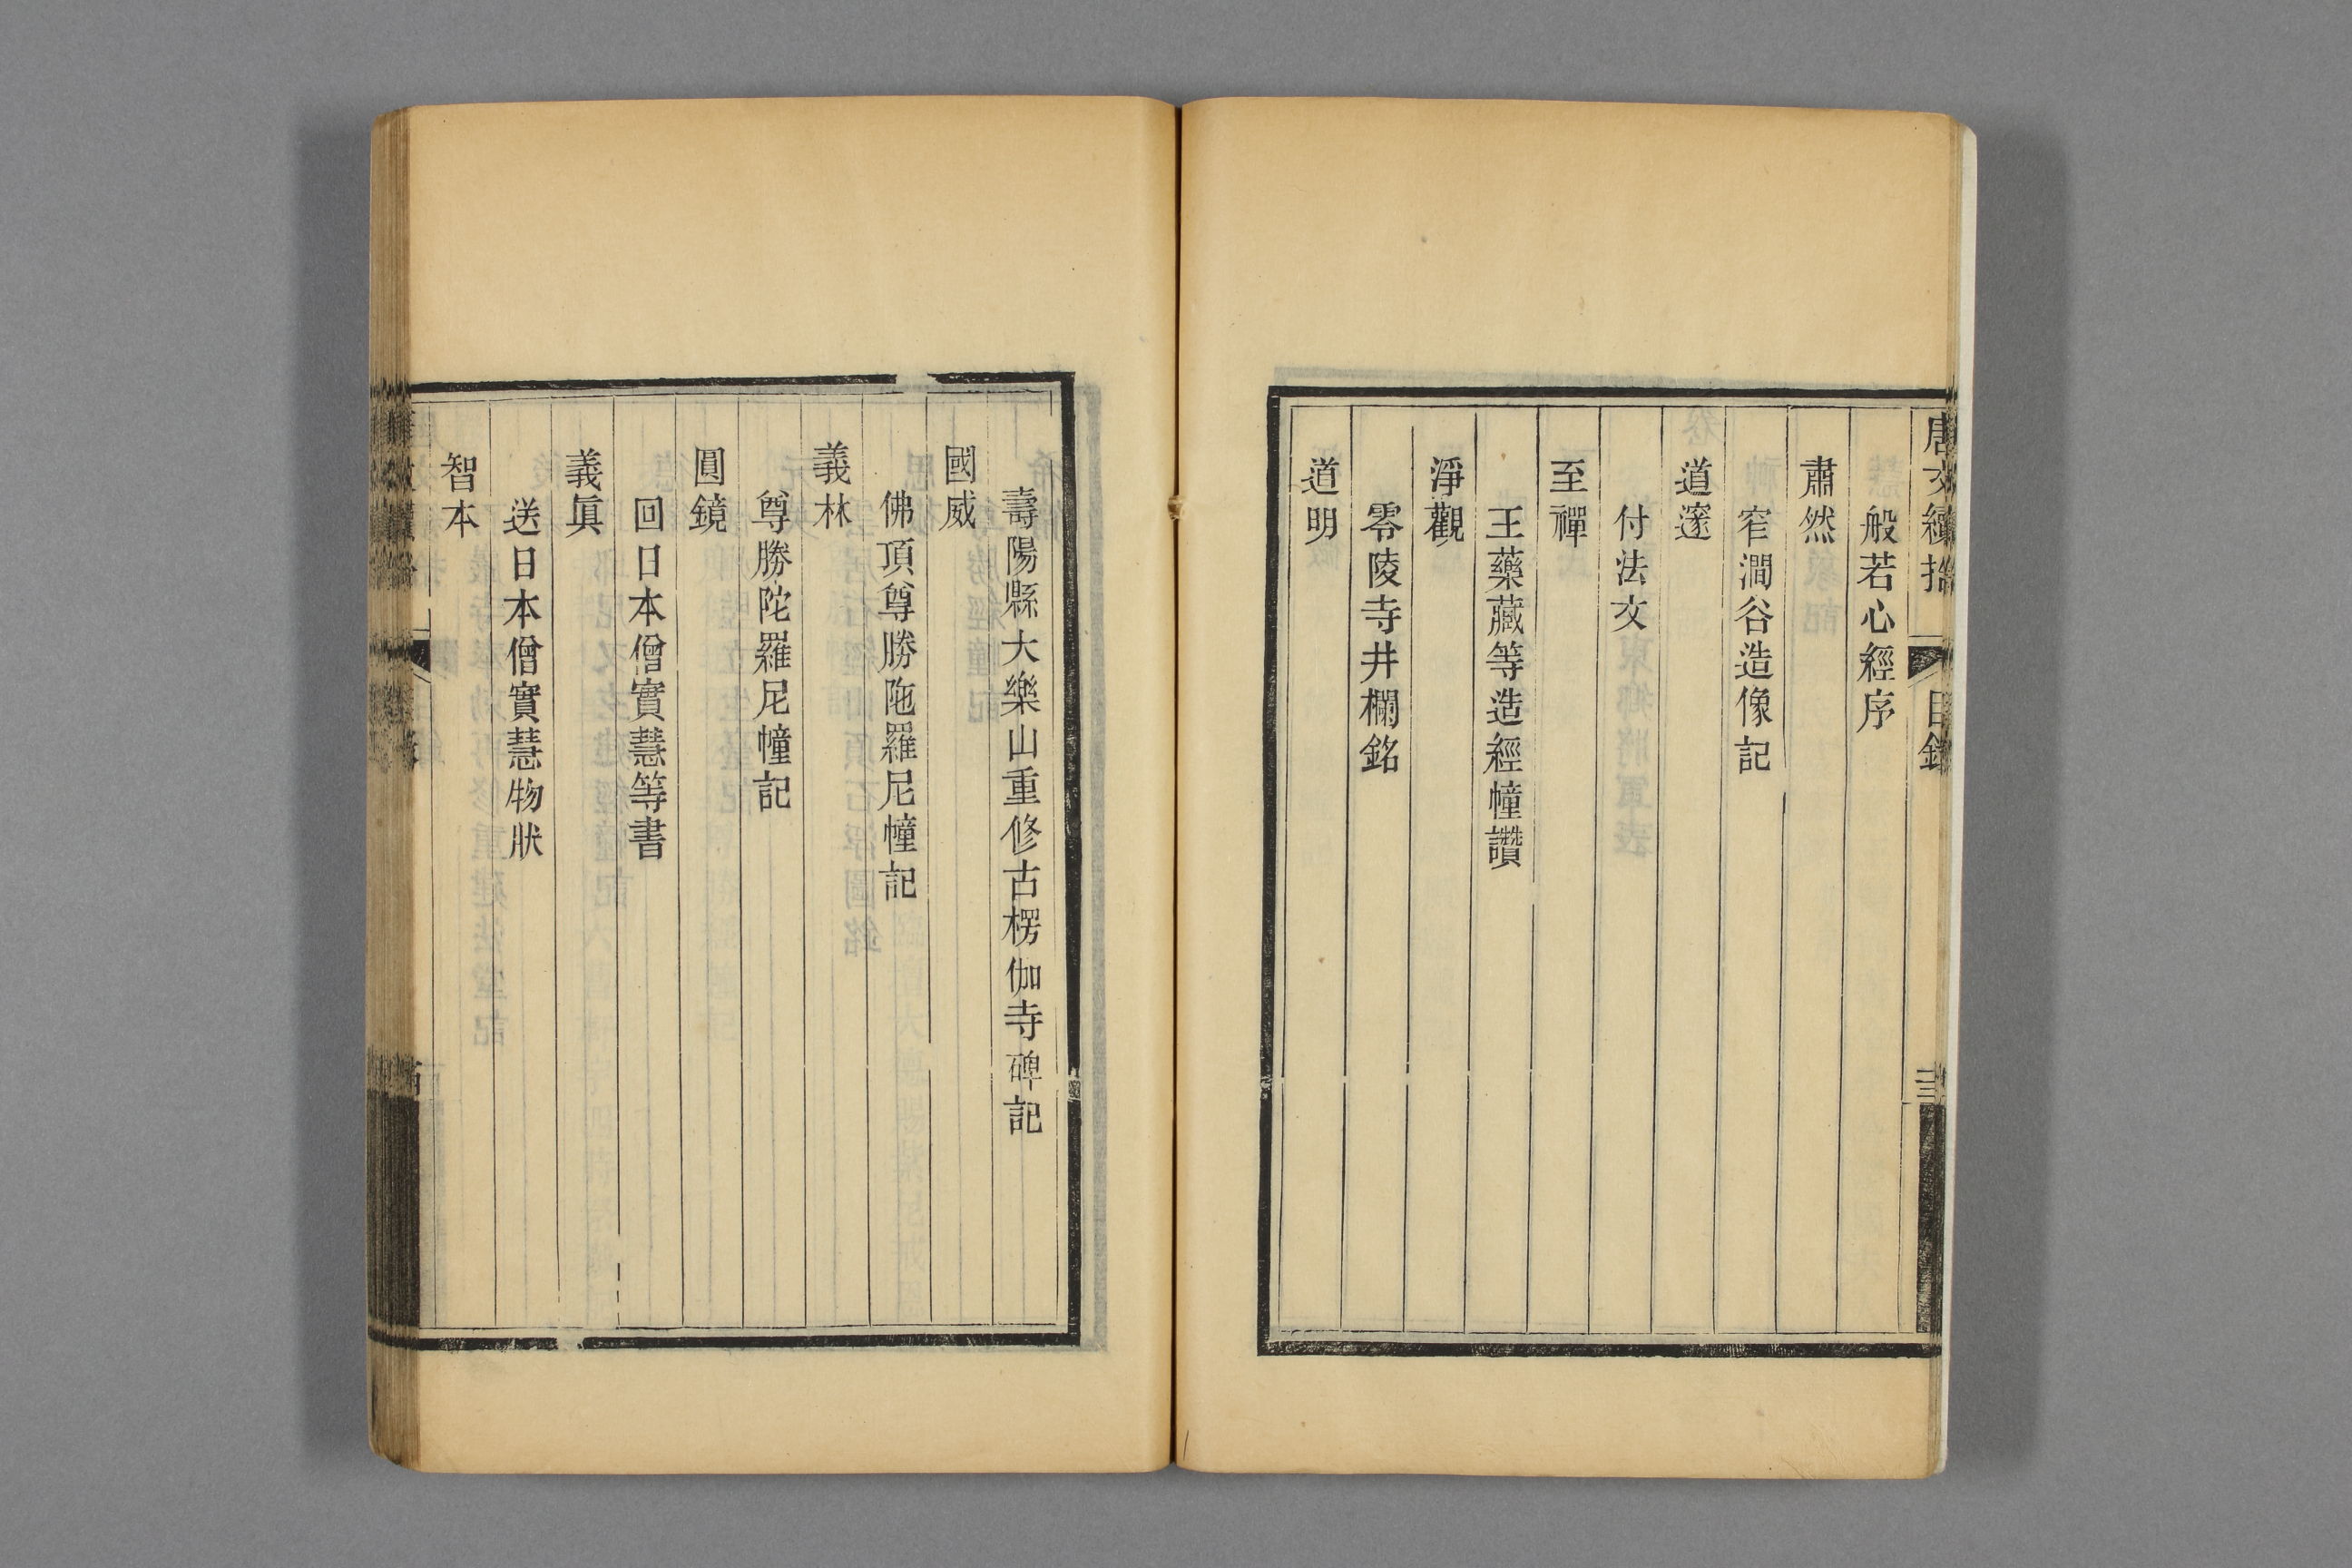 唐文續拾
目錄
般若心經序
肅然
窄澗谷造像記
道邃
付法文
至禪
王藥藏等造經幢讚
淨觀
零陵寺井欄銘
道明
壽陽縣大樂山重修古楞伽寺碑記
國威
佛頂尊勝陁羅尼幢記
義林
尊勝陀羅尼幢記
圓鏡
回日本僧實慧等書
義眞
送日本僧實慧物狀
智本